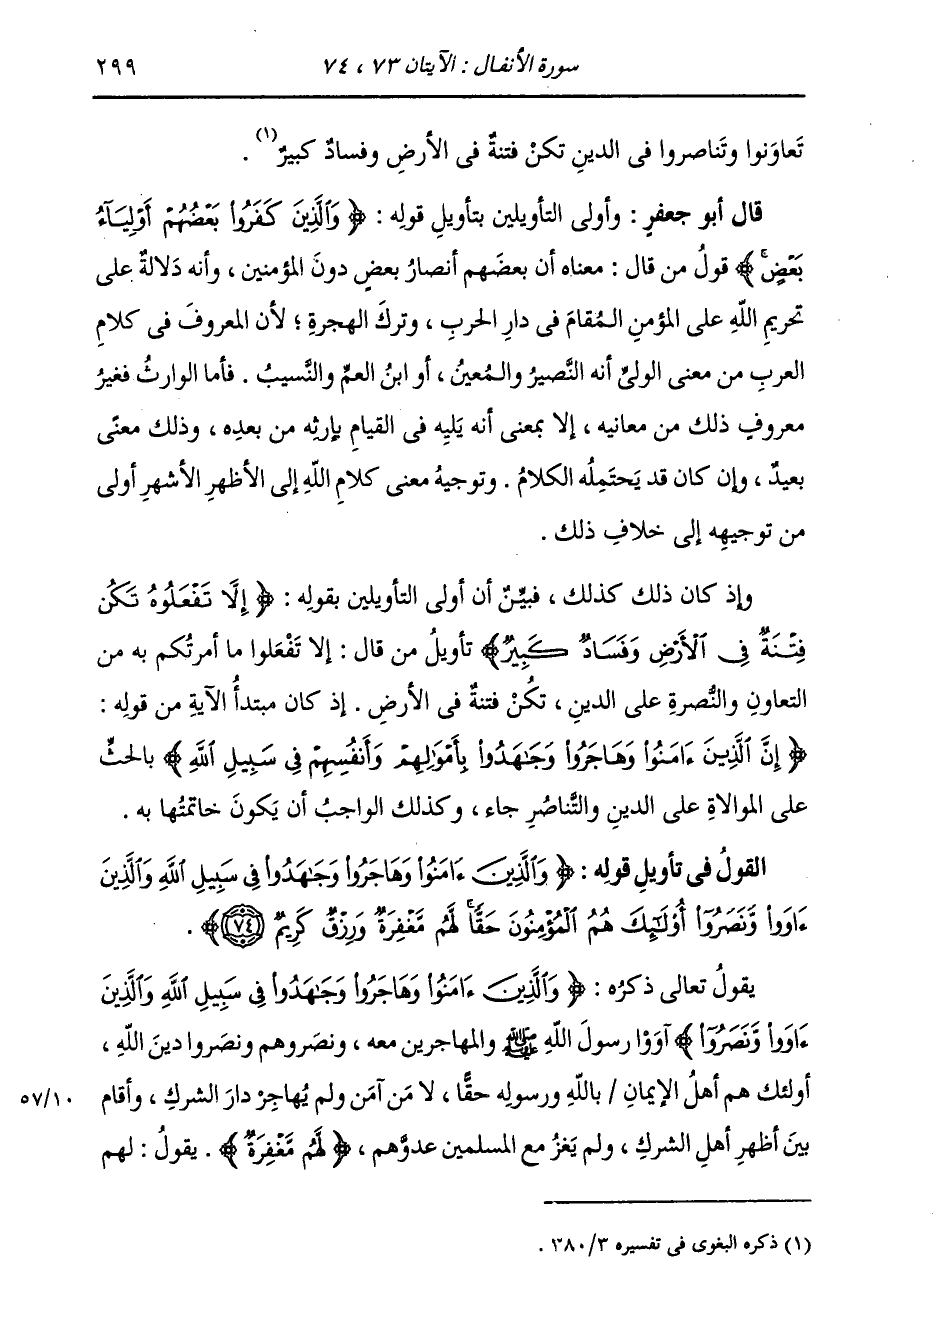 سورة الأنفال : الآيتان ٧٣ ، ٧٤ ٢٩٩
تَعاوَنوا وتَناصروا فى الدينِ تكنْ فتنةٌ فى الأرضِ وفسادٌ كبيرٌ(١) .
قال أبو جعفرٍ : وأولى التأويلين بتأويلِ قولِه : ﴿ وَٱلَّذِينَ كَفَرُوا۟ بَعْضُهُمْ أَوْلِيَآءُ
بَعْضٍۚ ﴾ قولُ من قال : معناه أن بعضَهم أنصارُ بعضٍ دونَ المؤمنين ، وأنه دَلالةٌ على
تحريمِ اللَّهِ على المؤمنِ المُقامَ فى دارِ الحربِ ، وتركَ الهجرةِ ؛ لأن المعروفَ فى كلامِ
العربِ من معنى الولىِّ أنه النَّصيرُ والمُعينُ ، أو ابنُ العمِّ والنَّسيبُ . فأما الوارثُ فغيرُ
معروفٍ ذلك من معانيه ، إلا بمعنى أنه يَلِيه فى القيامِ بإرثِه من بعدِه ، وذلك معنًى
بعيدٌ ، وإن كان قد يَحتَمِلُه الكلامُ . وتوجيهُ معنى كلامِ اللَّهِ إلى الأظهرِ الأشهرِ أولى
من توجيهِه إلى خلافِ ذلك .
وإذ كان ذلك كذلك ، فبيِّنٌ أن أولى التأويلين بقولِه : ﴿ إِلَّا تَفْعَلُوهُ تَكُن
فِتْنَةٌ فِى ٱلْأَرْضِ وَفَسَادٌ كَبِيرٌ ﴾ تأويلُ من قال : إلا تَفْعَلوا ما أمرتُكم به من
التعاونِ والنُّصرةِ على الدينِ ، تكُنْ فتنةٌ فى الأرضِ . إذ كان مبتدأُ الآيةِ من قولِه :
﴿ إِنَّ ٱلَّذِينَ ءَامَنُوا۟ وَهَاجَرُوا۟ وَجَـٰهَدُوا۟ بِأَمْوَٰلِهِمْ وَأَنفُسِهِمْ فِى سَبِيلِ ٱللَّهِ ﴾ بالحثِّ
على الموالاةِ على الدينِ والتَّناصُرِ جاء ، وكذلك الواجبُ أن يَكونَ خاتمتُها به .
القولُ فى تأويلِ قولِه : ﴿ وَٱلَّذِينَ ءَامَنُوا۟ وَهَاجَرُوا۟ وَجَـٰهَدُوا۟ فِى سَبِيلِ ٱللَّهِ وَٱلَّذِينَ
ءَاوَوا۟ وَّنَصَرُوٓا۟ أُو۟لَـٰٓئِكَ هُمُ ٱلْمُؤْمِنُونَ حَقًّاۚ لَّهُم مَّغْفِرَةٌ وَرِزْقٌ كَرِيمٌ ٧٤ ﴾ .
يقولُ تعالى ذكرُه : ﴿ وَٱلَّذِينَ ءَامَنُوا۟ وَهَاجَرُوا۟ وَجَـٰهَدُوا۟ فِى سَبِيلِ ٱللَّهِ وَٱلَّذِينَ
ءَاوَوا۟ وَّنَصَرُوٓا۟ ﴾ آوَوْا رسولَ اللَّهِ ﷺ والمهاجرين معه ، ونصَروهم ونصَروا دينَ اللَّهِ ،
أولئك هم أهلُ الإيمانِ / باللَّهِ ورسولِه حقًّا ، لا مَن آمَن ولم يُهاجِرْ دارَ الشركِ ، وأقام ٥٧/١٠
بينَ أظهرِ أهلِ الشركِ ، ولم يَغزُ مع المسلمين عدوَّهم ، ﴿ لَّهُم مَّغْفِرَةٌ ﴾ . يقولُ : لهم
(١) ذكره البغوى فى تفسيره ٣٨٠/٣ .